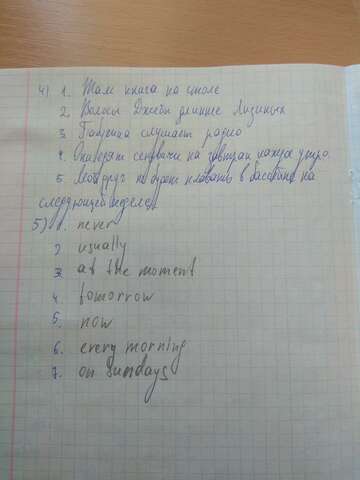 4) 1. Там книга на столе
2. Волосы Джейн длиннее Лизиных
3. Бабушка слушает радио
4. Они едят сендвичи на завтрак каждое утро.
5. Мой друг не будет плавать в бассейне на
следующей неделе.
5) 1. never
2. usually
3. at the moment
4. tomorrow
5. now
6. every morning
7. on sundays